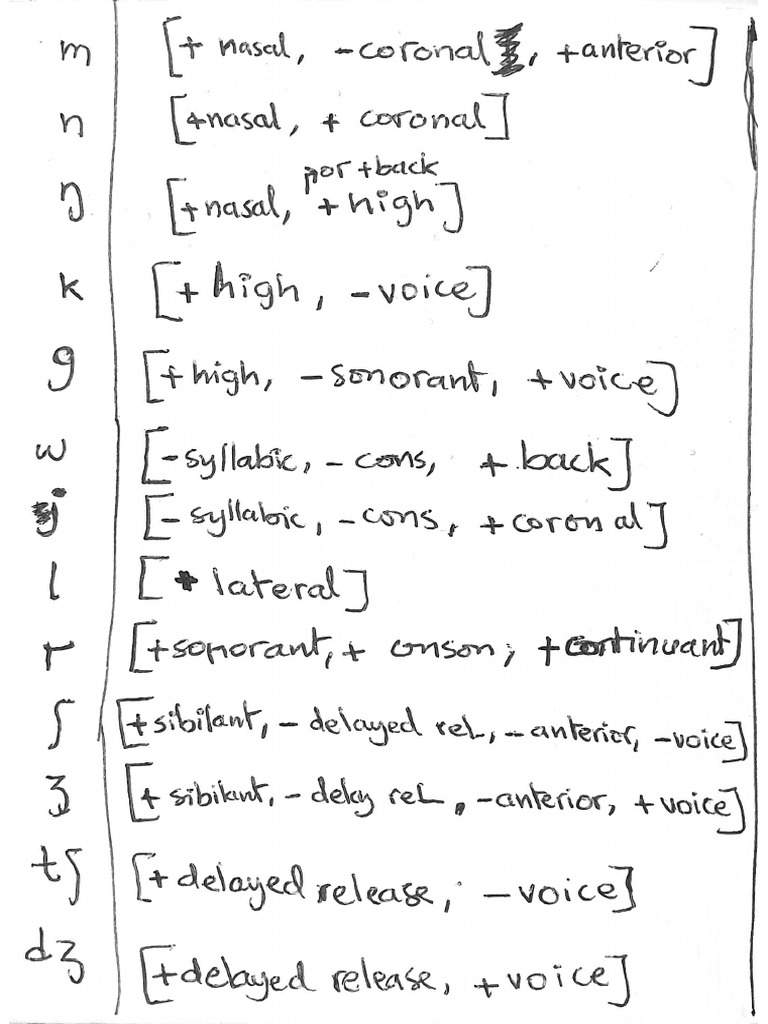 m [+ nasal, -coronal, +anterior]
n [+nasal, + coronal]
por +back
ŋ [+nasal, + high]
k [+ high, -voice]
g [+high, -sonorant, +voice]
w [-syllabic, - cons, + back]
j [- syllabic, -cons, +coronal]
l [+ lateral]
r [+sonorant, + onson, +continuant]
ʃ [+sibilant, - delayed rel, - anterior, -voice]
ʒ [+ sibilant, - delay rel, -anterior, + voice]
tʃ [+ delayed release, - voice]
dʒ [+delayed release, +voice]